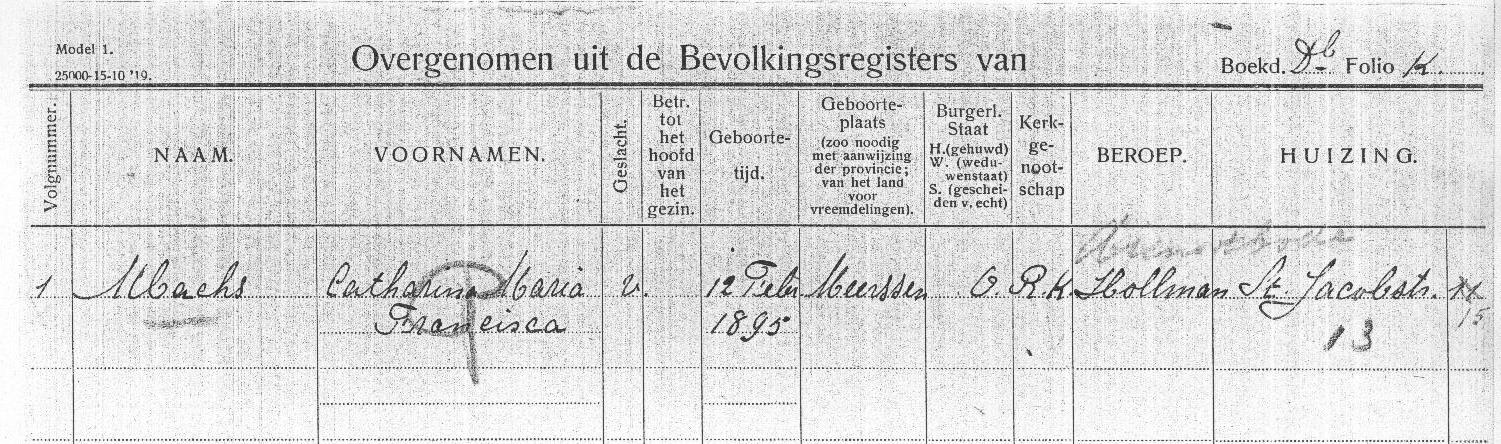 Model 1.
25000-15-10 '19.
Overgenomen uit de Bevolkingsregisters van
Boekd. Db Folio K.
Volgnummer.
NAAM.
VOORNAMEN.
Geslacht.
Betr.
tot
het
hoofd
van
het
gezin.
Geboorte-
tijd.
Geboorte-
plaats
(zoo noodig
met aanwijzing
der provincie;
van het land
voor
vreemdelingen).
Burgerl.
Staat
H.(gehuwd)
W. (wedu-
wenstaat)
S. (geschei-
den v. echt)
Kerk-
ge-
noot-
schap
BEROEP.
HUIZING.
Dienstbode
1 Ubachs Catharina Maria v. 12 Febr Meerssen O. R.K. Hollman St. Jacobstr.
Francisca 1895 13
15